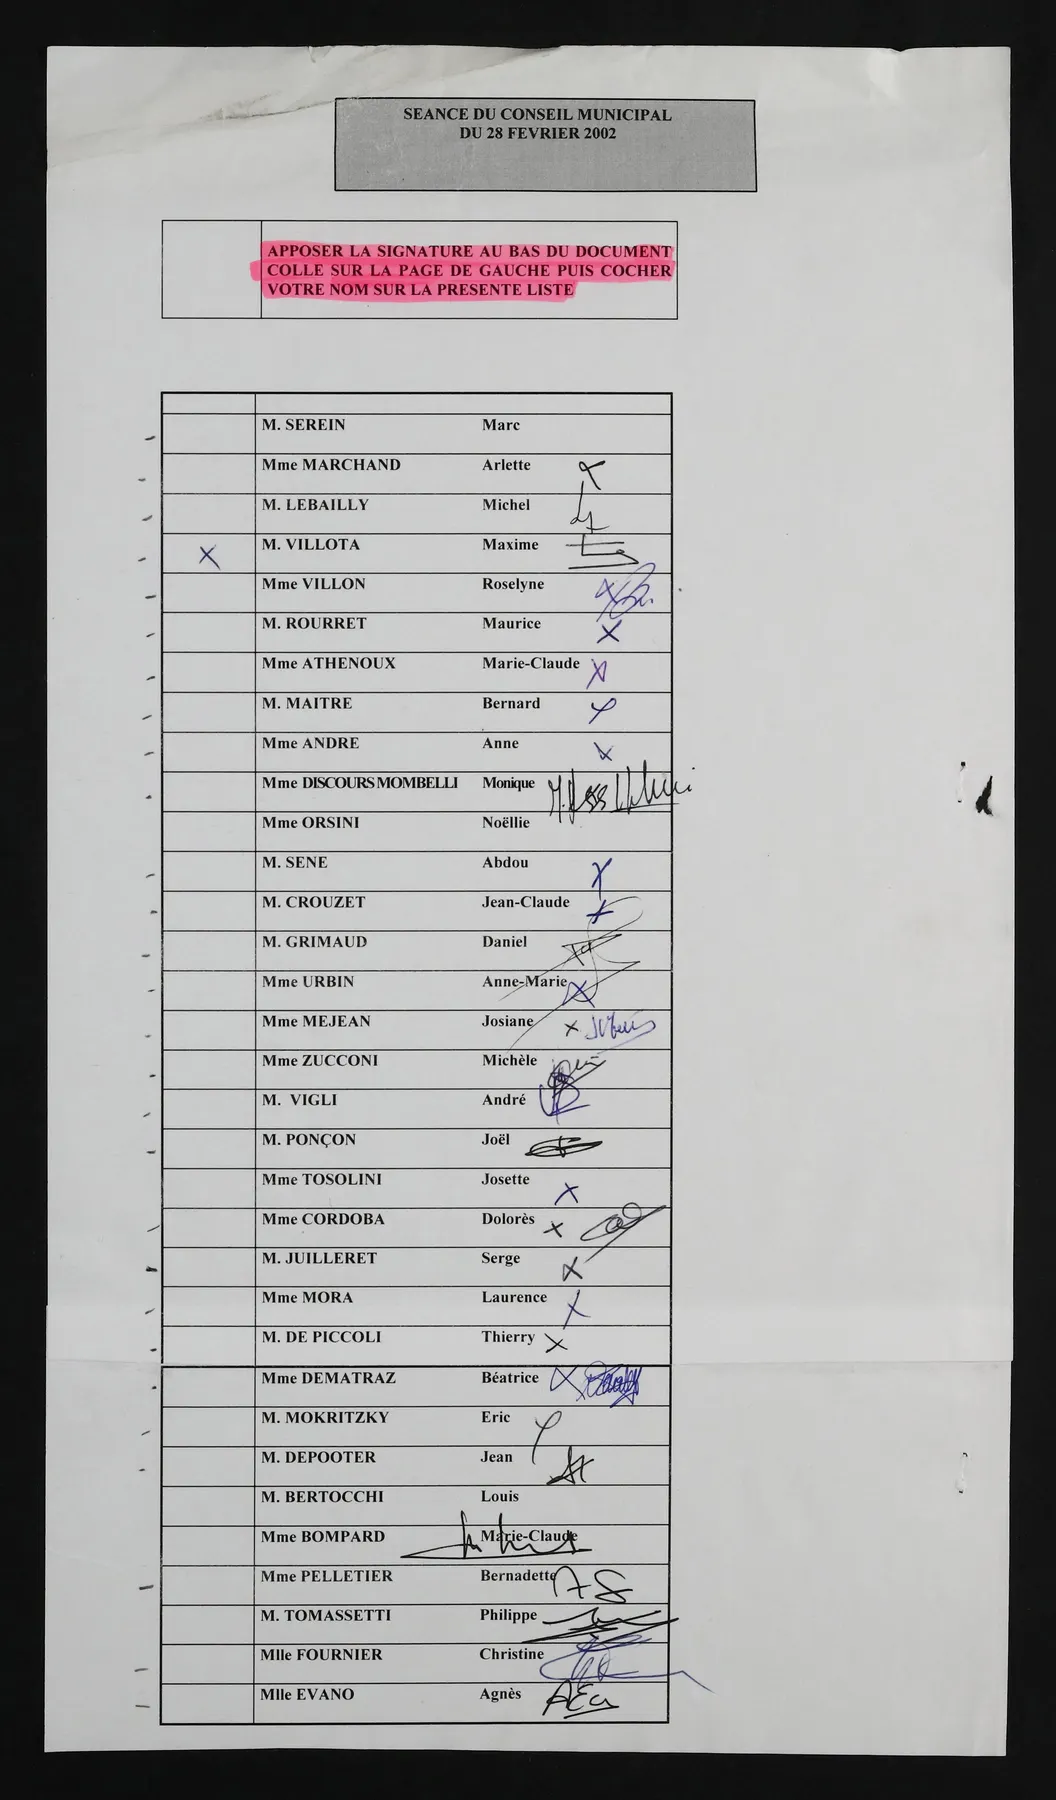 SEANCE DU CONSEIL MUNICIPAL
DU 28 FEVRIER 2002
APPOSER LA SIGNATURE AU BAS DU DOCUMENT
COLLE SUR LA PAGE DE GAUCHE PUIS COCHER
VOTRE NOM SUR LA PRESENTE LISTE
M. SEREIN Marc
Mme MARCHAND Arlette
M. LEBAILLY Michel
X M. VILLOTA Maxime
Mme VILLON Roselyne
M. ROURRET Maurice X
Mme ATHENOUX Marie-Claude X
M. MAITRE Bernard
Mme ANDRE Anne X
Mme DISCOURS MOMBELLI Monique
Mme ORSINI Noëllie
M. SENE Abdou
M. CROUZET Jean-Claude
M. GRIMAUD Daniel
Mme URBIN Anne-Marie X
Mme MEJEAN Josiane X
Mme ZUCCONI Michèle
M. VIGLI André
M. PONÇON Joël
Mme TOSOLINI Josette X
Mme CORDOBA Dolorès X
M. JUILLERET Serge X
Mme MORA Laurence X
M. DE PICCOLI Thierry X
Mme DEMATRAZ Béatrice X
M. MOKRITZKY Eric
M. DEPOOTER Jean
M. BERTOCCHI Louis
Mme BOMPARD Marie-Claude
Mme PELLETIER Bernadette
M. TOMASSETTI Philippe
Mlle FOURNIER Christine
Mlle EVANO Agnès